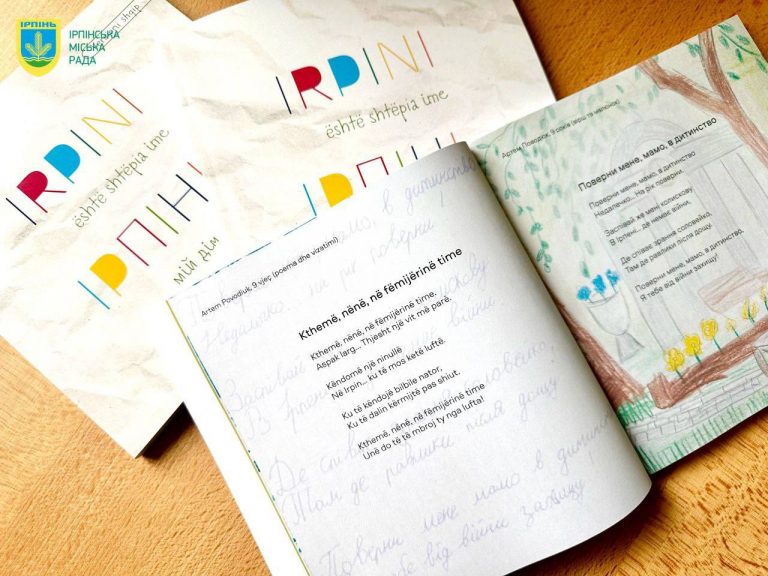 ІРПІНЬ
ІРПІНСЬКА
МІСЬКА
РАДА
shqip
IRPINI
është shtëpia ime
ІРПІНЬ
мій дім
IRPINI
është shtëpia ime
ІРПІНЬ
Artem Povodiuk, 9 vjeç (poema dhe vizatimi)
Kthemë, nënë, në fëmijërinë time
Kthemë, nënë, në fëmijërinë time,
Aspak larg... Thjesht një vit më parë.
Këndomë një ninullë
Në Irpin... ku të mos ketë luftë.
Ku të këndojë bilbile nator,
Ku të dalin kërmijtë pas shiut.
Kthemë, nënë, në fëmijërinë time
Unë do të të mbroj ty nga lufta!
мамо, в дитинство
Недалечко... на рік поверни
Заспівай
В Ірпені війни
Де співає соловейко,
Там де равлики після дощу
Поверни мене мамо в дитинство
тебе від війни захищу
Артем Поводюк, 9 років (вірш та малюнок)
Поверни мене, мамо, в дитинство
Поверни мене, мамо, в дитинство
Недалечко... На рік поверни.
Заспівай же мені колискову
В Ірпені, де немає війни,
Де співає зрання соловейко,
Там де равлики після дощу.
Поверни мене, мамо, в дитинство,
Я тебе від війни захищу!